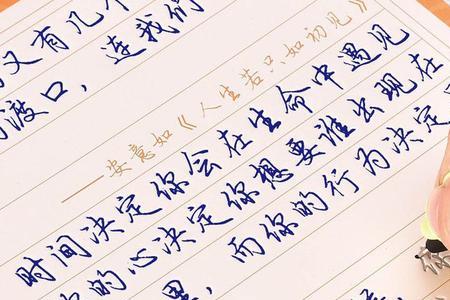 又有几个
的渡口，连我们
——安意如《人生若只如初见》
时间决定你会在生命中遇见
的心决定你想要谁出现在
里，而你的行为决定